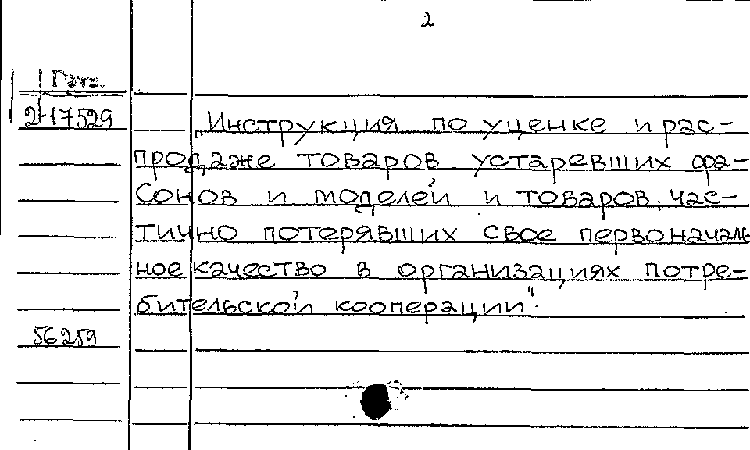 2
2-17529
„Инструкция по уценке и рас-
продаже товаров устаревших фа-
сонов и моделей и товаров, час-
тично потерявших свое первоначаль
ное качество в организациях потре-
бительской кооперации".
56259